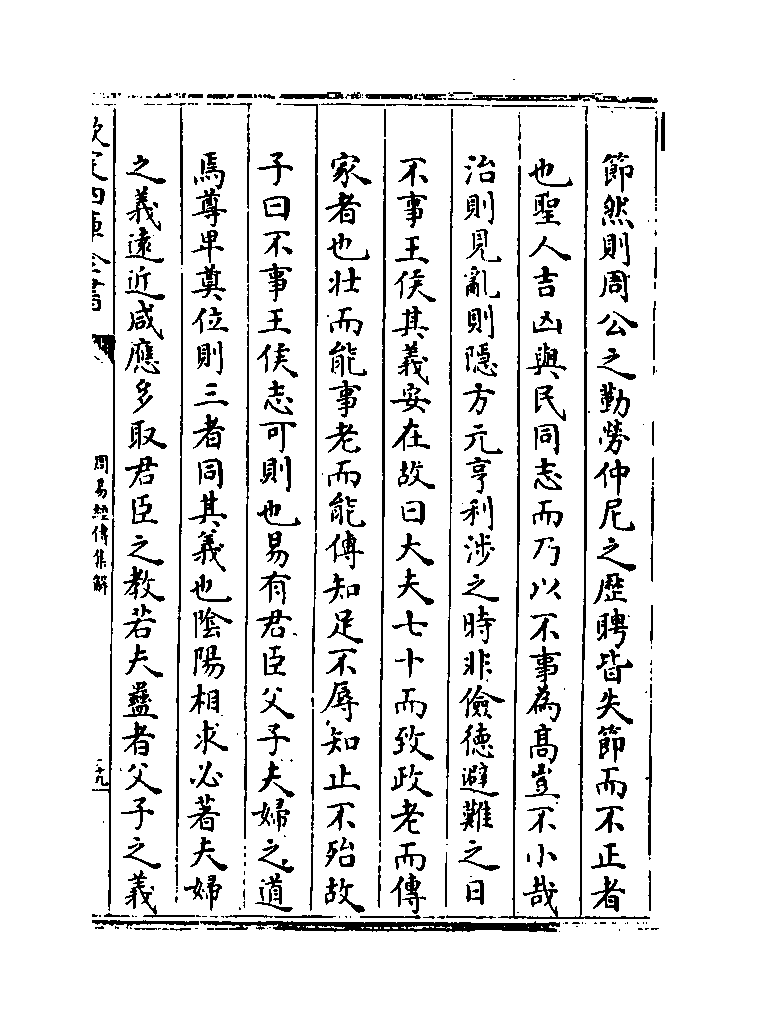 節然則周公之勤勞仲尼之歴聘皆失節而不正者
也聖人吉凶與民同志而乃以不事為髙豈不小哉
治則見亂則隱方元亨利涉之時非儉德避難之日
不事王侯其義安在故曰大夫七十而致政老而傳
家者也壮而能事老而能傳知足不辱知止不殆故
子曰不事王侯志可則也易有君臣父子夫婦之道
焉尊卑奠位則三者同其義也陰陽相求必著夫婦
之義遠近咸應多取君臣之教若夫蠱者父子之義
欽定四庫全書
周易經傳集解
二十九